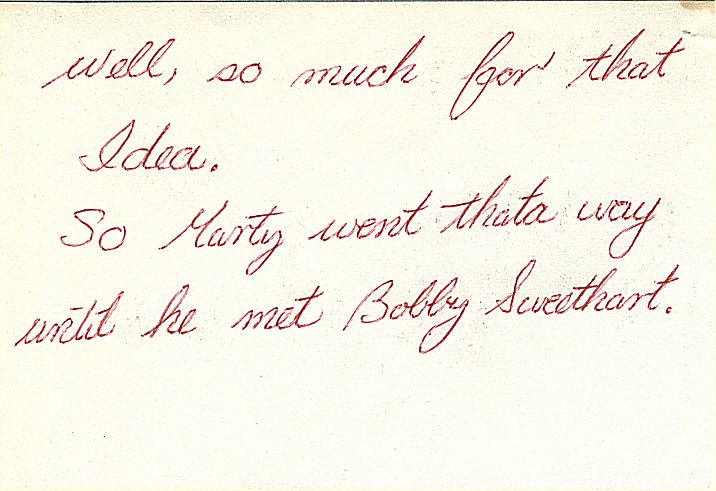 Well, so much for that
Idea.
So Marty went thata way
until he met Bobby Sweethart.